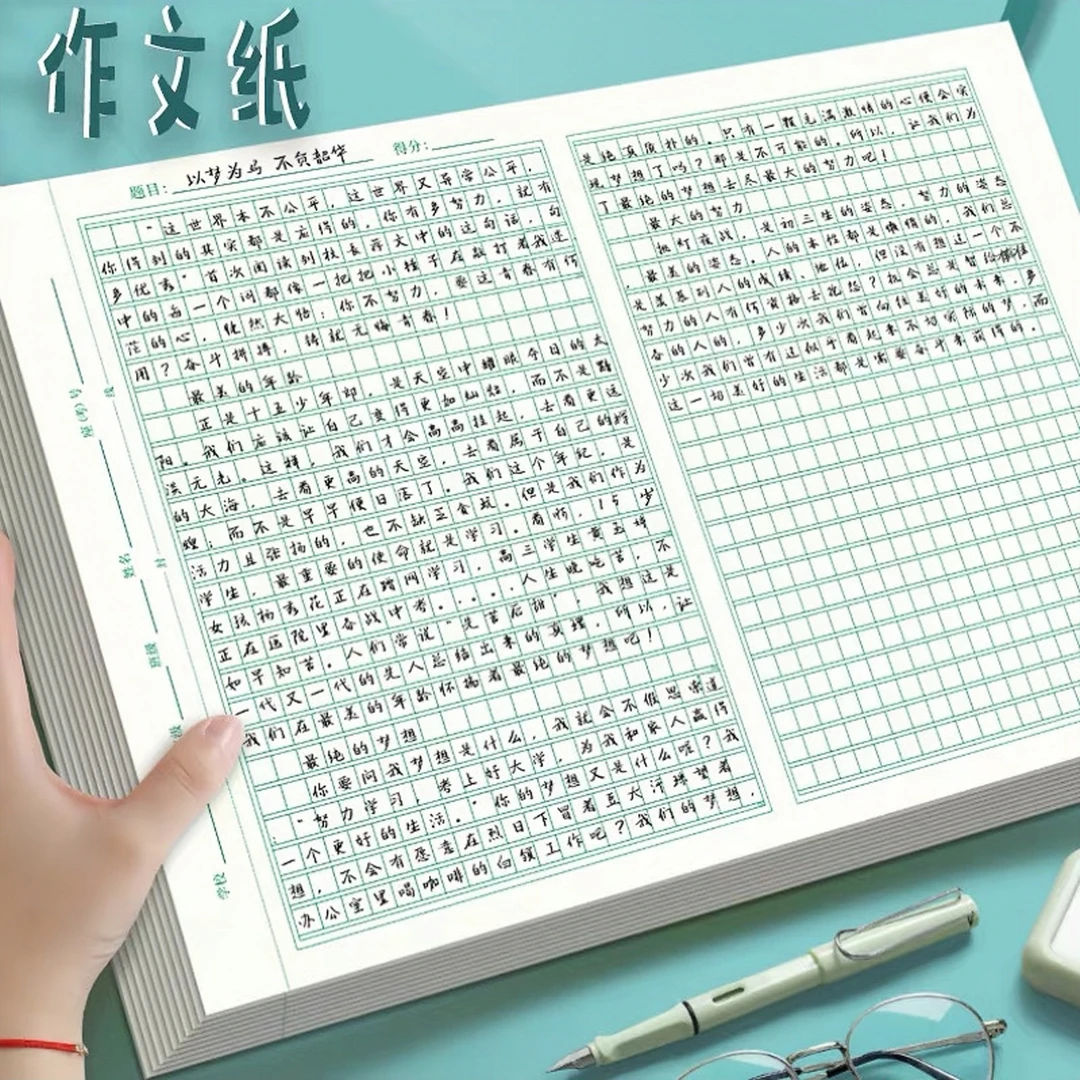 作文纸
题目：以梦为马 不负韶华 得分：
“这世界本不公平，这世界又异常公平，
你得到的其实都是应得的，你有多努力，就有
多优秀”首次阅读到校长荐文中的这句话，句
中的每一个词都像一把把小锤子在敲打着我迷
茫的心，陡然大悟：你不努力，要这青春有何
用？奋斗拼搏，铸就无悔青春！
最美的年龄
正是十五少年郎，是天空中耀眼夺目的太
阳。我们应该让自己变得更加灿烂，而不是黯
淡无光。这样，我们才会高高挂起，去看更远
的大海，去看更高的天空，去看属于自己的辉
煌；而不是早早便日落了。我们这个年纪，是
活力且张扬的，也不缺乏贪玩。但是我们作为
学生，最重要的使命就是学习。看吶，15岁
女孩杨秀花正在蹭网学习，高三学生黄玉婷
正在医院里备战中考．．．．人生晚吃苦，不
如早知苦。人们常说“是苦后甜”，我想这是
一代又一代的是人总结出来的真理，所以，让
我们在最美的年龄怀揣着最纯的梦想吧！
最纯的梦想
你要问我梦想是什么，我就会不假思索道
：“努力学习，考上好大学，为我和家人赢得
一个更好的生活。”你的梦想又是什么呢？我
想，不会有愿意在烈日下冒着豆大汗珠望着
办公室里喝咖啡的白领工作吧？我们的梦想，
是纯真质朴的。只有一颗充满激情的心便会实
现梦想了吗？那是不可能的。所以，让我们为
了最纯的梦想去尽最大的努力吧！
最大的努力
挑灯夜战，是初三生的姿态，努力的姿态
，最美的姿态。人的本性都是懒惰的，我们总
是羡慕别人的成绩、地位，但没有想过一个不
努力的人有何资格去抱怨？机会总是留给
备的人的，多少次我们曾向往美好的未来，多
少次我们曾有过似乎看起来不切实际的梦，而
这一切美好的生活都是需要奋斗来获得的。
座位号
姓名
班级
学校